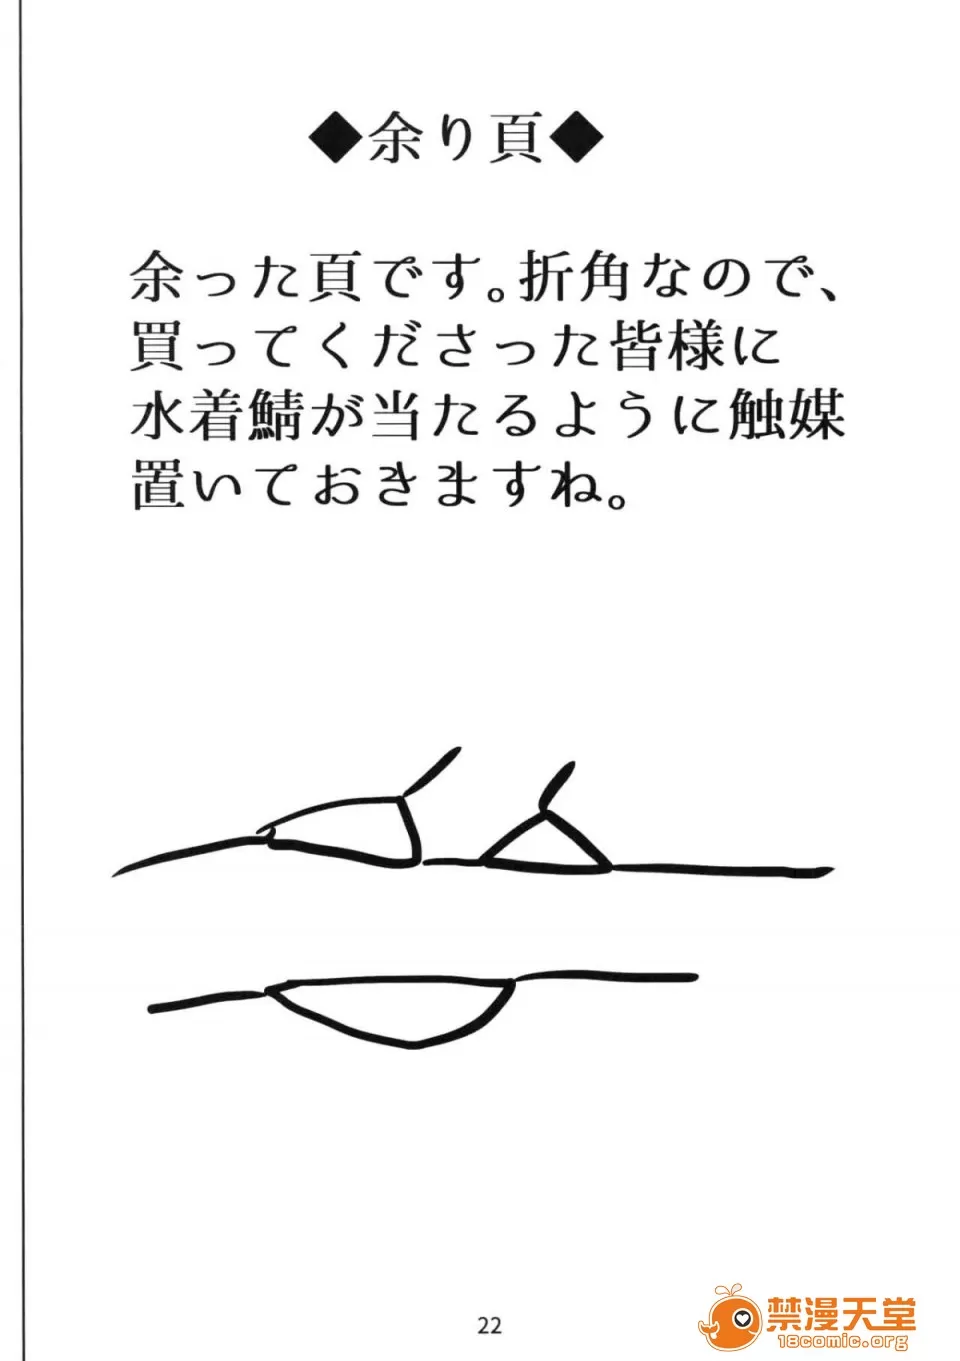 ◆余り頁◆
余った頁です。折角なので、
買ってくださった皆様に
水着鯖が当たるように触媒
置いておきますね。
22
禁漫天堂
18comic.org